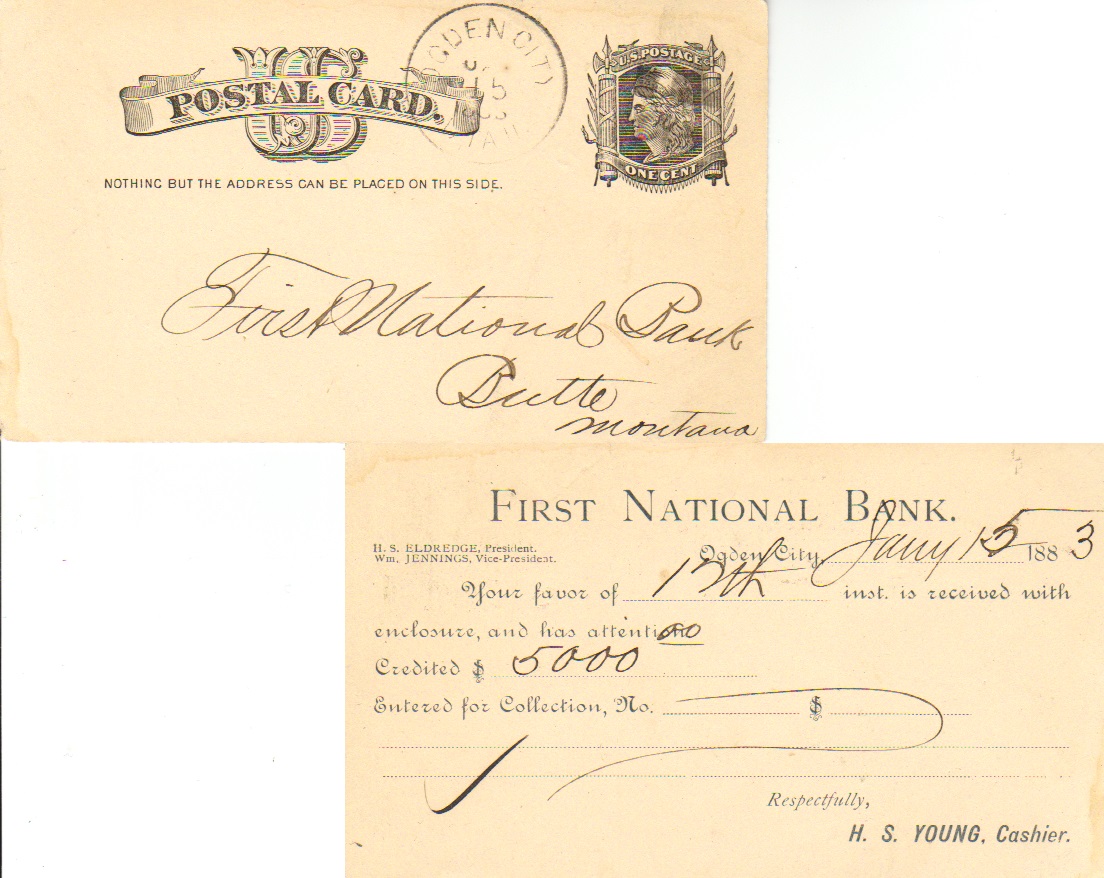 US
POSTAL CARD.
OGDEN CITY
15
U.S. POSTAGE
ONE CENT
NOTHING BUT THE ADDRESS CAN BE PLACED ON THIS SIDE.
First National Bank
Butte
Montana
FIRST NATIONAL BANK.
H. S. ELDREDGE, President.
Wm. JENNINGS, Vice-President.
Ogden City, Jany 15 1883
Your favor of 12th inst. is received with
enclosure, and has attention
Credited $ 5000 00
Entered for Collection, No. $
Respectfully,
H. S. YOUNG, Cashier.